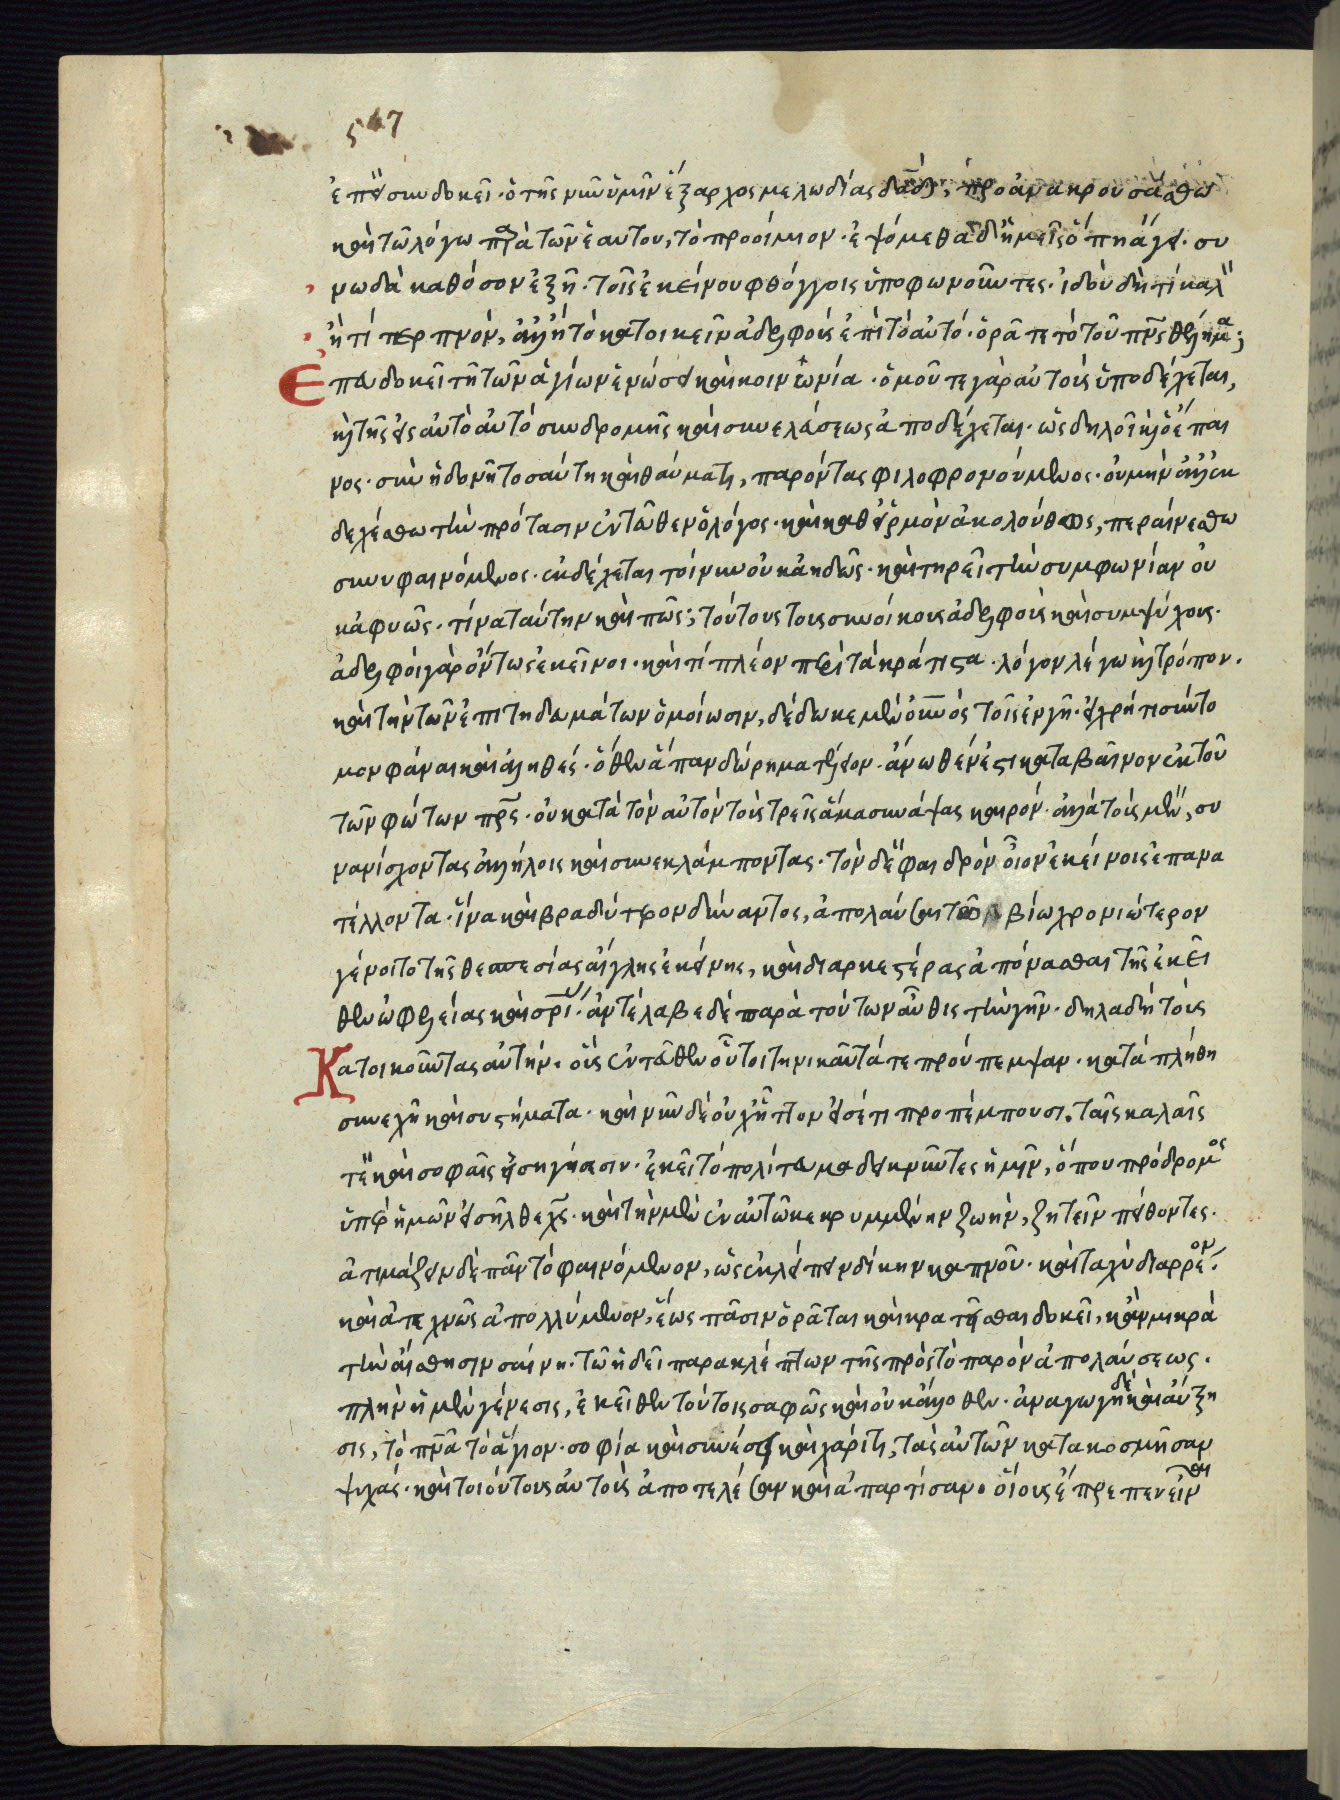 547
ἐπεὶ συνδοκεῖ· ὁ τῆς νῦν ὑμῖν ἔξαρχος μελωδίας δαδ, προανακρουσάσθω
καὶ τῶ λόγω παρὰ τῶν ἑαυτοῦ, τὸ προοίμιον· ἑψόμεθα δὲ ἡμεῖς ὅπη ἄγει· συ
νωδὰ καθόσον ἐξῆ· τοῖς ἐκείνου φθόγγοις ὑποφωνοῦντες· ἰδοὺ δὴ τί καλὸν
ἢ τί τερπνόν, ἀλλ' ἢ τὸ κατοικεῖν ἀδελφοὺς ἐπὶ τὸ αὐτό· ὁρᾶτε τὸ τοῦ πνς θέλημα;
Ἐπευδοκεῖ τῆ τῶν ἁγίων ἑνώσει καὶ κοινωνία· ὁμοῦ τε γὰρ αὐτοὺς ὑποδέχεται,
καὶ τῆς εἰς αὐτὸ αὐτὸ συνδρομῆς καὶ συνελάσεως ἀποδέχεται· ὡς δηλοῖ καὶ ὁ ἔπαι
νος· σὺν ἡδονῆ τοσαύτη καὶ θαύματι, παρόντας φιλοφρονούμενος· οὐ μὴν ἀλλ' ἐκ
δεχέσθω τὴν πρότασιν ἐντεῦθεν ὁ λόγος· καὶ καθ' εἱρμὸν ἀκολούθως, περαινέσθω
συνυφαινόμενος· ἐκδέχεται τοίνυν οὐκ ἀηδῶς· καὶ τηρεῖ τὴν συμφωνίαν οὐ
κ ἀφυῶς· τίνα ταύτην καὶ πῶς; τούτους τοὺς συνοίκους ἀδελφοὺς καὶ συμψύχους·
ἀδελφοὶ γὰρ ὄντως ἐκεῖνοι· καὶ τί πλέον περὶ τὰ κράτιστα· λόγον λέγω καὶ τρόπον·
καὶ τὴν τῶν ἐπιτηδευμάτων ὁμοίωσιν, δέδωκε μὲν ὁ οὐνὸς τοῖς ἐν γῆ· εἰ χρή τι σύντο
μον φάναι καὶ ἀληθές· ὅθεν ἅπαν δώρημα τέλειον· ἄνωθέν ἐστι καταβαῖνον ἐκ τοῦ
τῶν φώτων πρς· οὐ κατὰ τὸν αὐτὸν τοὺς τρεῖς ἅμα συνάψας καιρόν· ἀλλὰ τοὺς μὲν, συ
νανίσχοντας ἀλλήλοις καὶ συνεκλάμποντας· τὸν δὲ φαιδρὸν οἷον ἐκείνοις ἐπανα
τέλλοντα· ἵνα καὶ βραδύτερον δύναντος, ἀπολαῦσαι τῶ βίω χρονιώτερον
γένοιτο τῆς θεσπεσίας αἴγλης ἐκείνης, καὶ διαρκεστέρας ἀπόνασθαι τῆς ἐκεῖ
θεν ὠφελείας καὶ σρι· ἀντέλαβε δὲ παρὰ τούτων αὖθις τὴν γῆν· δηλαδὴ τοὺς
Κατοικοῦντας αὐτήν· οὓς ἐντεῦθεν οὗτοι τηνικαῦτά τε προύπεμψαν· κατὰ πλήθη
συνεχῆ καὶ συστήματα· καὶ νῦν δὲ οὐχ ἧττον εἰσέτι προπέμπουσι, ταῖς καλαῖς
τὲ καὶ σοφαῖς εἰσηγήσεσιν· ἐκεῖ τὸ πολίτευμα δεικνῦντες ἡμῖν, ὅπου πρόδρομος
ὑπὲρ ἡμῶν εἰσῆλθε χς· καὶ τὴν μὲν ἐν αὐτῶ κεκρυμμένην ζωήν, ζητεῖν πείθοντες·
ἀτιμάζειν δὲ πᾶν τὸ φαινόμενον, ὡς ἐκλείπειν δίκην καπνοῦ· καὶ ταχὺ διαρρέον·
καὶ ἀτεχνῶς ἀπολλύμενον, ἕως πᾶσιν ὁρᾶται καὶ κρατεῖσθαι δοκεῖ, κἂν μικρὰ
τὴν αἴσθησιν σαίνη· τῶ ἡδεῖ παρακλέπτων τῆς πρὸς τὸ παρὸν ἀπολαύσεως·
πλὴν ἡ μὲν γένεσις, ἐκεῖθεν τούτοις σαφῶς καὶ οὐκ ἄλλοθεν· ἀναγωγὴ δὲ καὶ αὔξη
σις, τὸ πνα τὸ ἅγιον· σοφία καὶ συνέσει καὶ χάριτι, τὰς αὐτῶν κατακοσμῆσαν
ψυχάς· καὶ τοιούτους αὐτοὺς ἀποτελέσαν καὶ ἀπαρτίσαν· οἵους ἔπρεπεν εἶναι